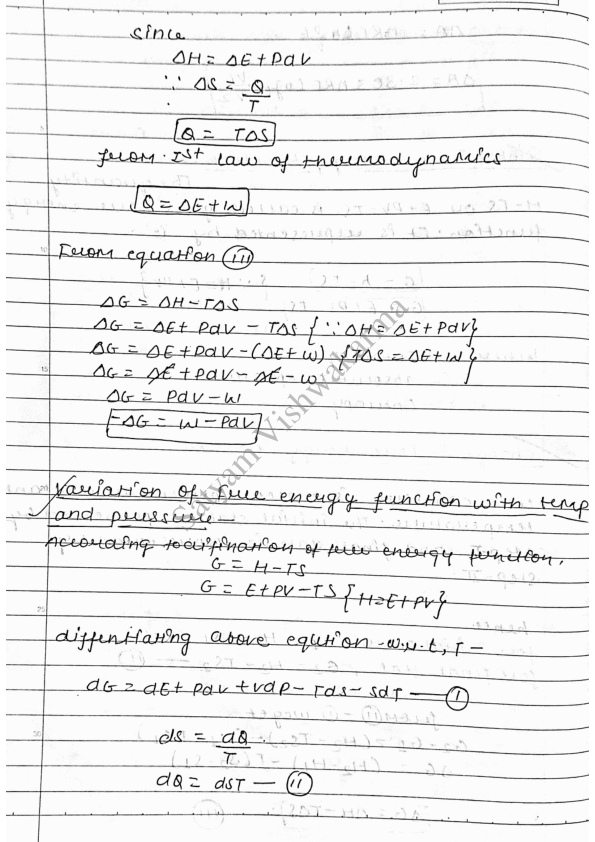 since
ΔH = ΔE + PdV
∵ ΔS = Q/T
Q = TΔS
from Ist law of thermodynamics
Q = ΔE + W
From equation (iii)
ΔG = ΔH - TΔS
ΔG = ΔE + PdV - TΔS {∵ ΔH = ΔE + PdV}
ΔG = ΔE + PdV - (ΔE + W) {TΔS = ΔE + W}
ΔG = ΔE + PdV - ΔE - W
ΔG = PdV - W
-ΔG = W - PdV
Satyam Vishwakarma
Variation of free energy function with temp
and pressure -
According to difination of free energy function.
G = H - TS
G = E + PV - TS {H = E + PV}
diffentiating above eqution w.r.t, T -
dG = dE + PdV + VdP - TdS - SdT — (1)
dS = dQ/T
dQ = dST — (11)